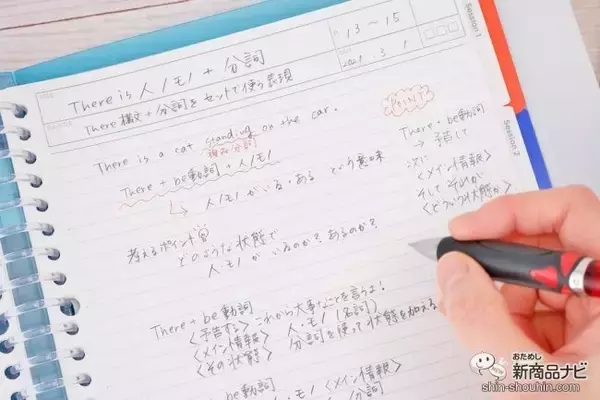 There is 人/モノ + 分詞
P. 13～15
There 構文+分詞をセットで使う表現
2021. 3. 1
Session 1
There is a cat standing on the car.
現在分詞
There + be動詞 + 人/モノ
↳ 人/モノ がいる・ある という意味
考えるポイント
どのような状態で
人・モノ がいるのか？あるのか？
POINT
There + be動詞
→ 予告して
次に
<メイン情報>
そして それが
<どういう状態か>
Session 2
There + be動詞
<予告する> これから大事なことを言うよ！
<メイン情報> 人・モノ (名詞)
<その状態> 分詞を使って状態を加える
be動詞
人/モノ <メイン情報>
分詞
おためし
新商品ナビ
shin-shouhin.com